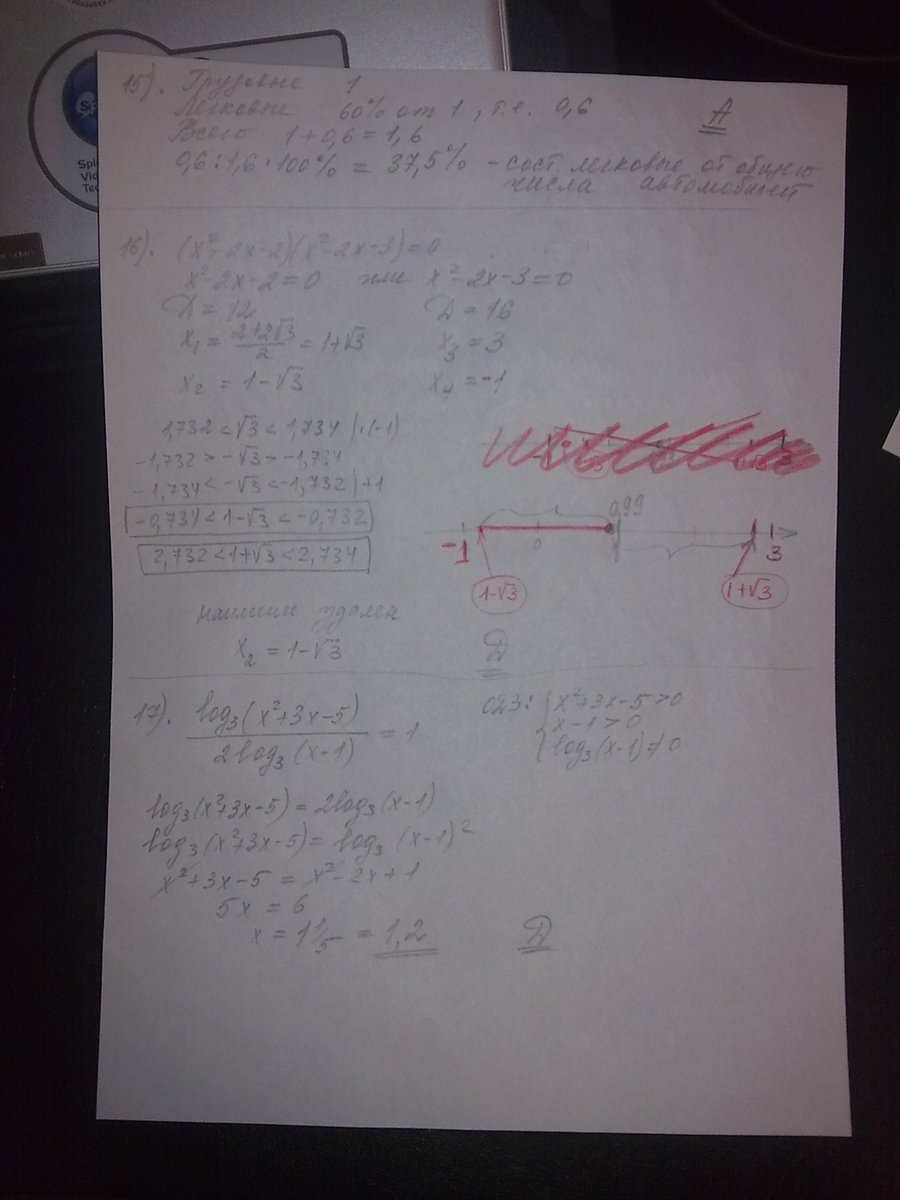 15). Грузовые 1
Легковые 60% от 1, т.е. 0,6
А
Всего 1+0,6=1,6
0,6:1,6·100% = 37,5% - сост. легковые от общего
числа автомобилей
16). (x²-2x-2)(x²-2x-3)=0
x²-2x-2=0 или x²-2x-3=0
D=12 D=16
x₁ = (2+2√3)/2 = 1+√3 x₃ = 3
x₂ = 1-√3 x₄ = -1
1,732 < √3 < 1,734 |·(-1)
-1,732 > -√3 > -1,734
-1,734 < -√3 < -1,732 | +1
-0,734 < 1-√3 < -0,732
2,732 < 1+√3 < 2,734
0,99
-1 0 3
1-√3 1+√3
наиболее удален
x₂ = 1-√3 Д
17). log₃(x²+3x-5)/2log₃(x-1) = 1
ОДЗ: { x²+3x-5>0
x-1>0
log₃(x-1)≠0
log₃(x²+3x-5) = 2log₃(x-1)
log₃(x²+3x-5) = log₃(x-1)²
x²+3x-5 = x²-2x+1
5x = 6
x = 1 1/5 = 1,2 Д